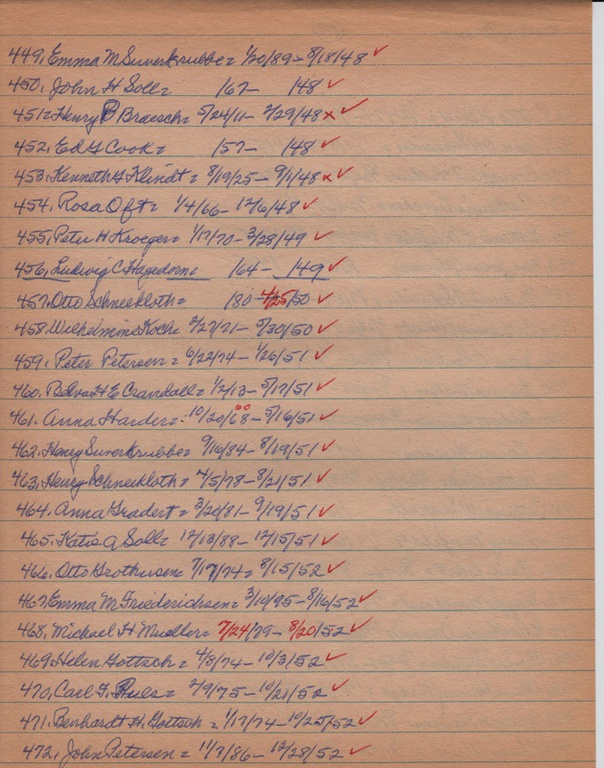 449, Emma M Suverkrubbe = 1/20/89 - 8/18/48 ✓
450, John H Soll = 167 - 148 ✓
451 = Henry P Braesch = 5/24/11 - 2/29/48 x ✓
452, Ed G Cook = 157 - 148 ✓
453, Kenneth G Klindt = 8/19/25 - 9/1/48 x ✓
454, Rosa Oft = 1/4/66 - 12/6/48 ✓
455, Peter H Kroeger = 1/17/70 - 3/28/49 ✓
456, Ludwig C Hagedorn = 164 - 149 ✓
457, Otto Schneekloth = 180 - 4/25/50 ✓
458, Wilhelmine Koch = 2/27/71 - 5/30/50 ✓
459, Peter Petersen = 6/22/74 - 1/26/51 ✓
460, H E Crandall = 1/2/13 - 5/17/51 ✓
461, Anna Harder = 10/20/68 00 - 5/16/51 ✓
462, Henry Suverkrubbe = 9/16/84 - 8/19/51 ✓
463, Henry Schneekloth = 4/5/78 - 8/21/51 ✓
464, Anna Gradert = 3/20/81 - 9/19/51 ✓
465, Katie A Soll = 12/13/88 - 12/15/51 ✓
466, Otto Grothusen = 7/17/74 = 8/15/52 ✓
467, Emma M Friederichsen = 3/10/95 - 8/16/52 ✓
468, Michael H Mueller = 7/24/79 - 8/20/52 ✓
469, Helen Gottsch = 4/8/74 - 10/3/52 ✓
470, Carl F. = 2/9/75 - 10/21/52 ✓
471, Benhardt H. Gottsch = 1/17/74 - 10/25/52 ✓
472, John Petersen = 11/7/86 - 12/28/52 ✓